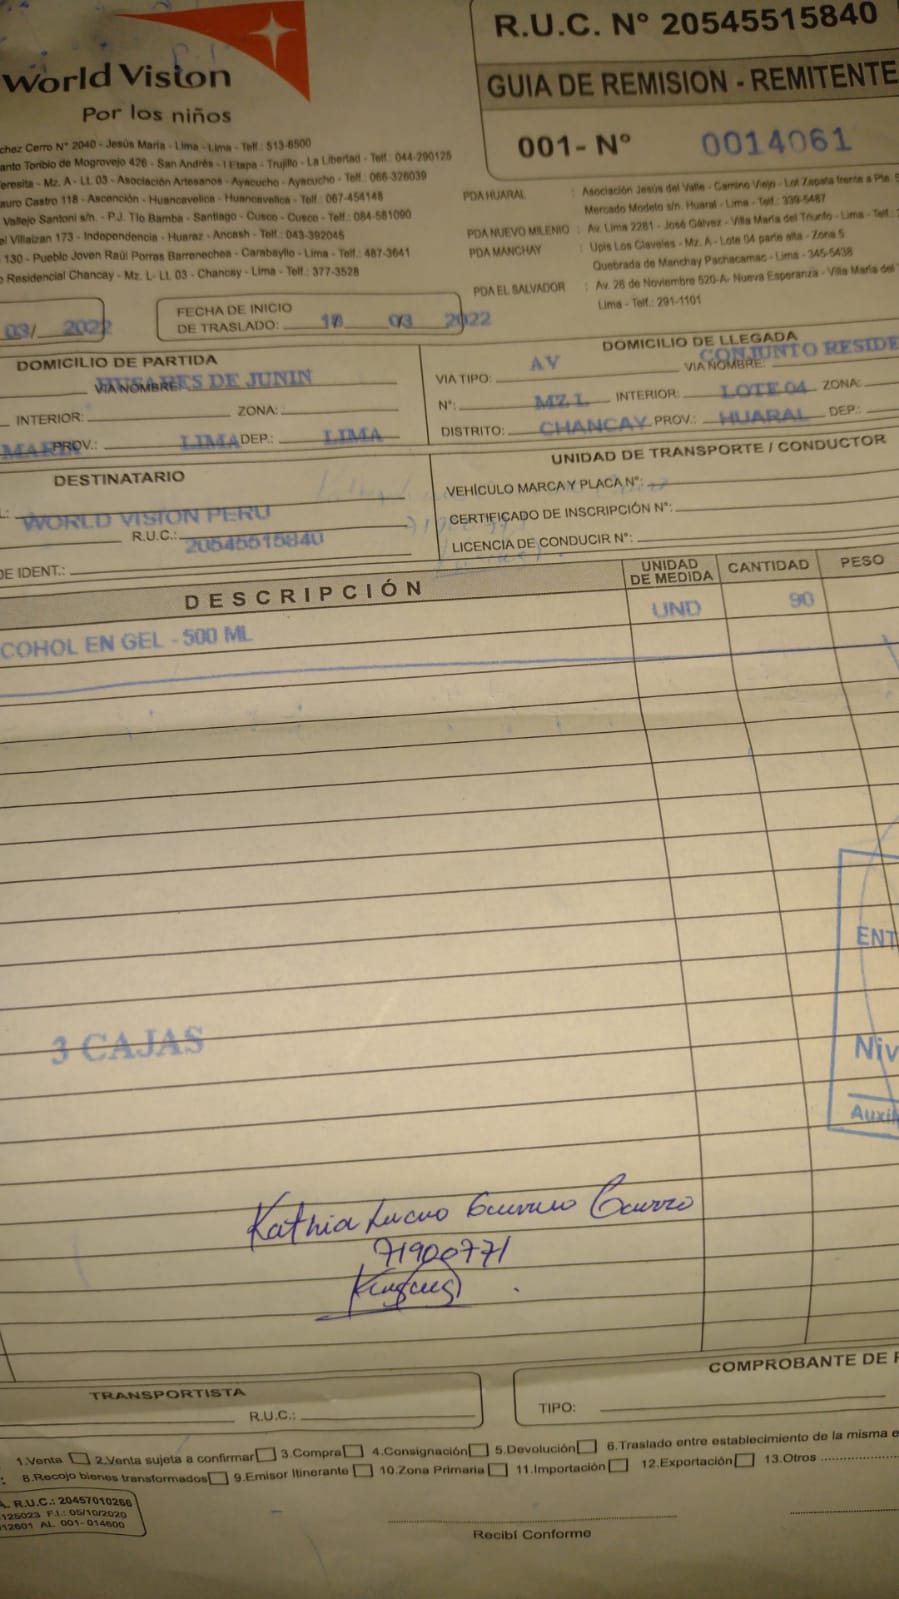 World Vision
Por los niños
R.U.C. N° 20545515840
GUIA DE REMISION - REMITENTE
001- N° 0014061
chez Cerro N° 2040 - Jesús María - Lima - Lima - Telf.: 513-6500
anto Toribio de Mogrovejo 426 - San Andrés - I Etapa - Trujillo - La Libertad - Telf.: 044-290125
eresita - Mz. A - Lt. 03 - Asociación Artesanos - Ayacucho - Ayacucho - Telf.: 066-326039
auro Castro 118 - Ascención - Huancavelica - Huancavelica - Telf.: 067-454148
Vallejo Santoni s/n. - P.J. Tío Bamba - Santiago - Cusco - Cusco - Telf.: 084-581090
el Villaizan 173 - Independencia - Huaraz - Ancash - Telf.: 043-392045
130 - Pueblo Joven Raúl Porras Barrenechea - Carabayllo - Lima - Telf.: 487-3641
o Residencial Chancay - Mz. L- Lt. 03 - Chancay - Lima - Telf.: 377-3528
PDA HUARAL : Asociación Jesús del Valle - Camino Viejo - Lot Zapata frente a Pta. 5
Mercado Modelo s/n. Huaral - Lima - Telf.: 339-5487
PDA NUEVO MILENIO : Av. Lima 2281 - José Gálvez - Villa María del Triunfo - Lima - Telf.: 2
PDA MANCHAY : Upis Los Claveles - Mz. A - Lote 04 parte alta - Zona 5
Quebrada de Manchay Pachacamac - Lima - 345-5438
PDA EL SALVADOR : Av. 28 de Noviembre 520-A- Nueva Esperanza - Villa María del
Lima - Telf.: 291-1101
03/ 2022
FECHA DE INICIO
DE TRASLADO: 03 2022
DOMICILIO DE PARTIDA
VIA NOMBRE: HUSARES DE JUNIN
INTERIOR: ZONA:
PROV.: LIMA DEP.: LIMA
DOMICILIO DE LLEGADA
VIA TIPO: AV VIA NOMBRE: CONJUNTO RESIDE
N°: MZ L INTERIOR: LOTE 04 ZONA:
DISTRITO: CHANCAY PROV.: HUARAL DEP.:
DESTINATARIO
L: WORLD VISION PERU
R.U.C.: 20545515840
DE IDENT.:
UNIDAD DE TRANSPORTE / CONDUCTOR
VEHÍCULO MARCA Y PLACA N°:
CERTIFICADO DE INSCRIPCIÓN N°:
LICENCIA DE CONDUCIR N°:
DESCRIPCIÓN UNIDAD DE MEDIDA CANTIDAD PESO
COHOL EN GEL - 500 ML UND 90
ENT
3 CAJAS
Niv
Auxil
Kathia
71900771
COMPROBANTE DE P
TRANSPORTISTA
R.U.C.:
TIPO:
1.Venta 2.Venta sujeta a confirmar 3.Compra 4.Consignación 5.Devolución 6.Traslado entre establecimiento de la misma e
8.Recojo bienes transformados 9.Emisor Itinerante 10.Zona Primaria 11.Importación 12.Exportación 13.Otros
A. R.U.C.: 20457010266
125023 F.I.: 05/10/2020
012601 AL 001-014600
Recibí Conforme